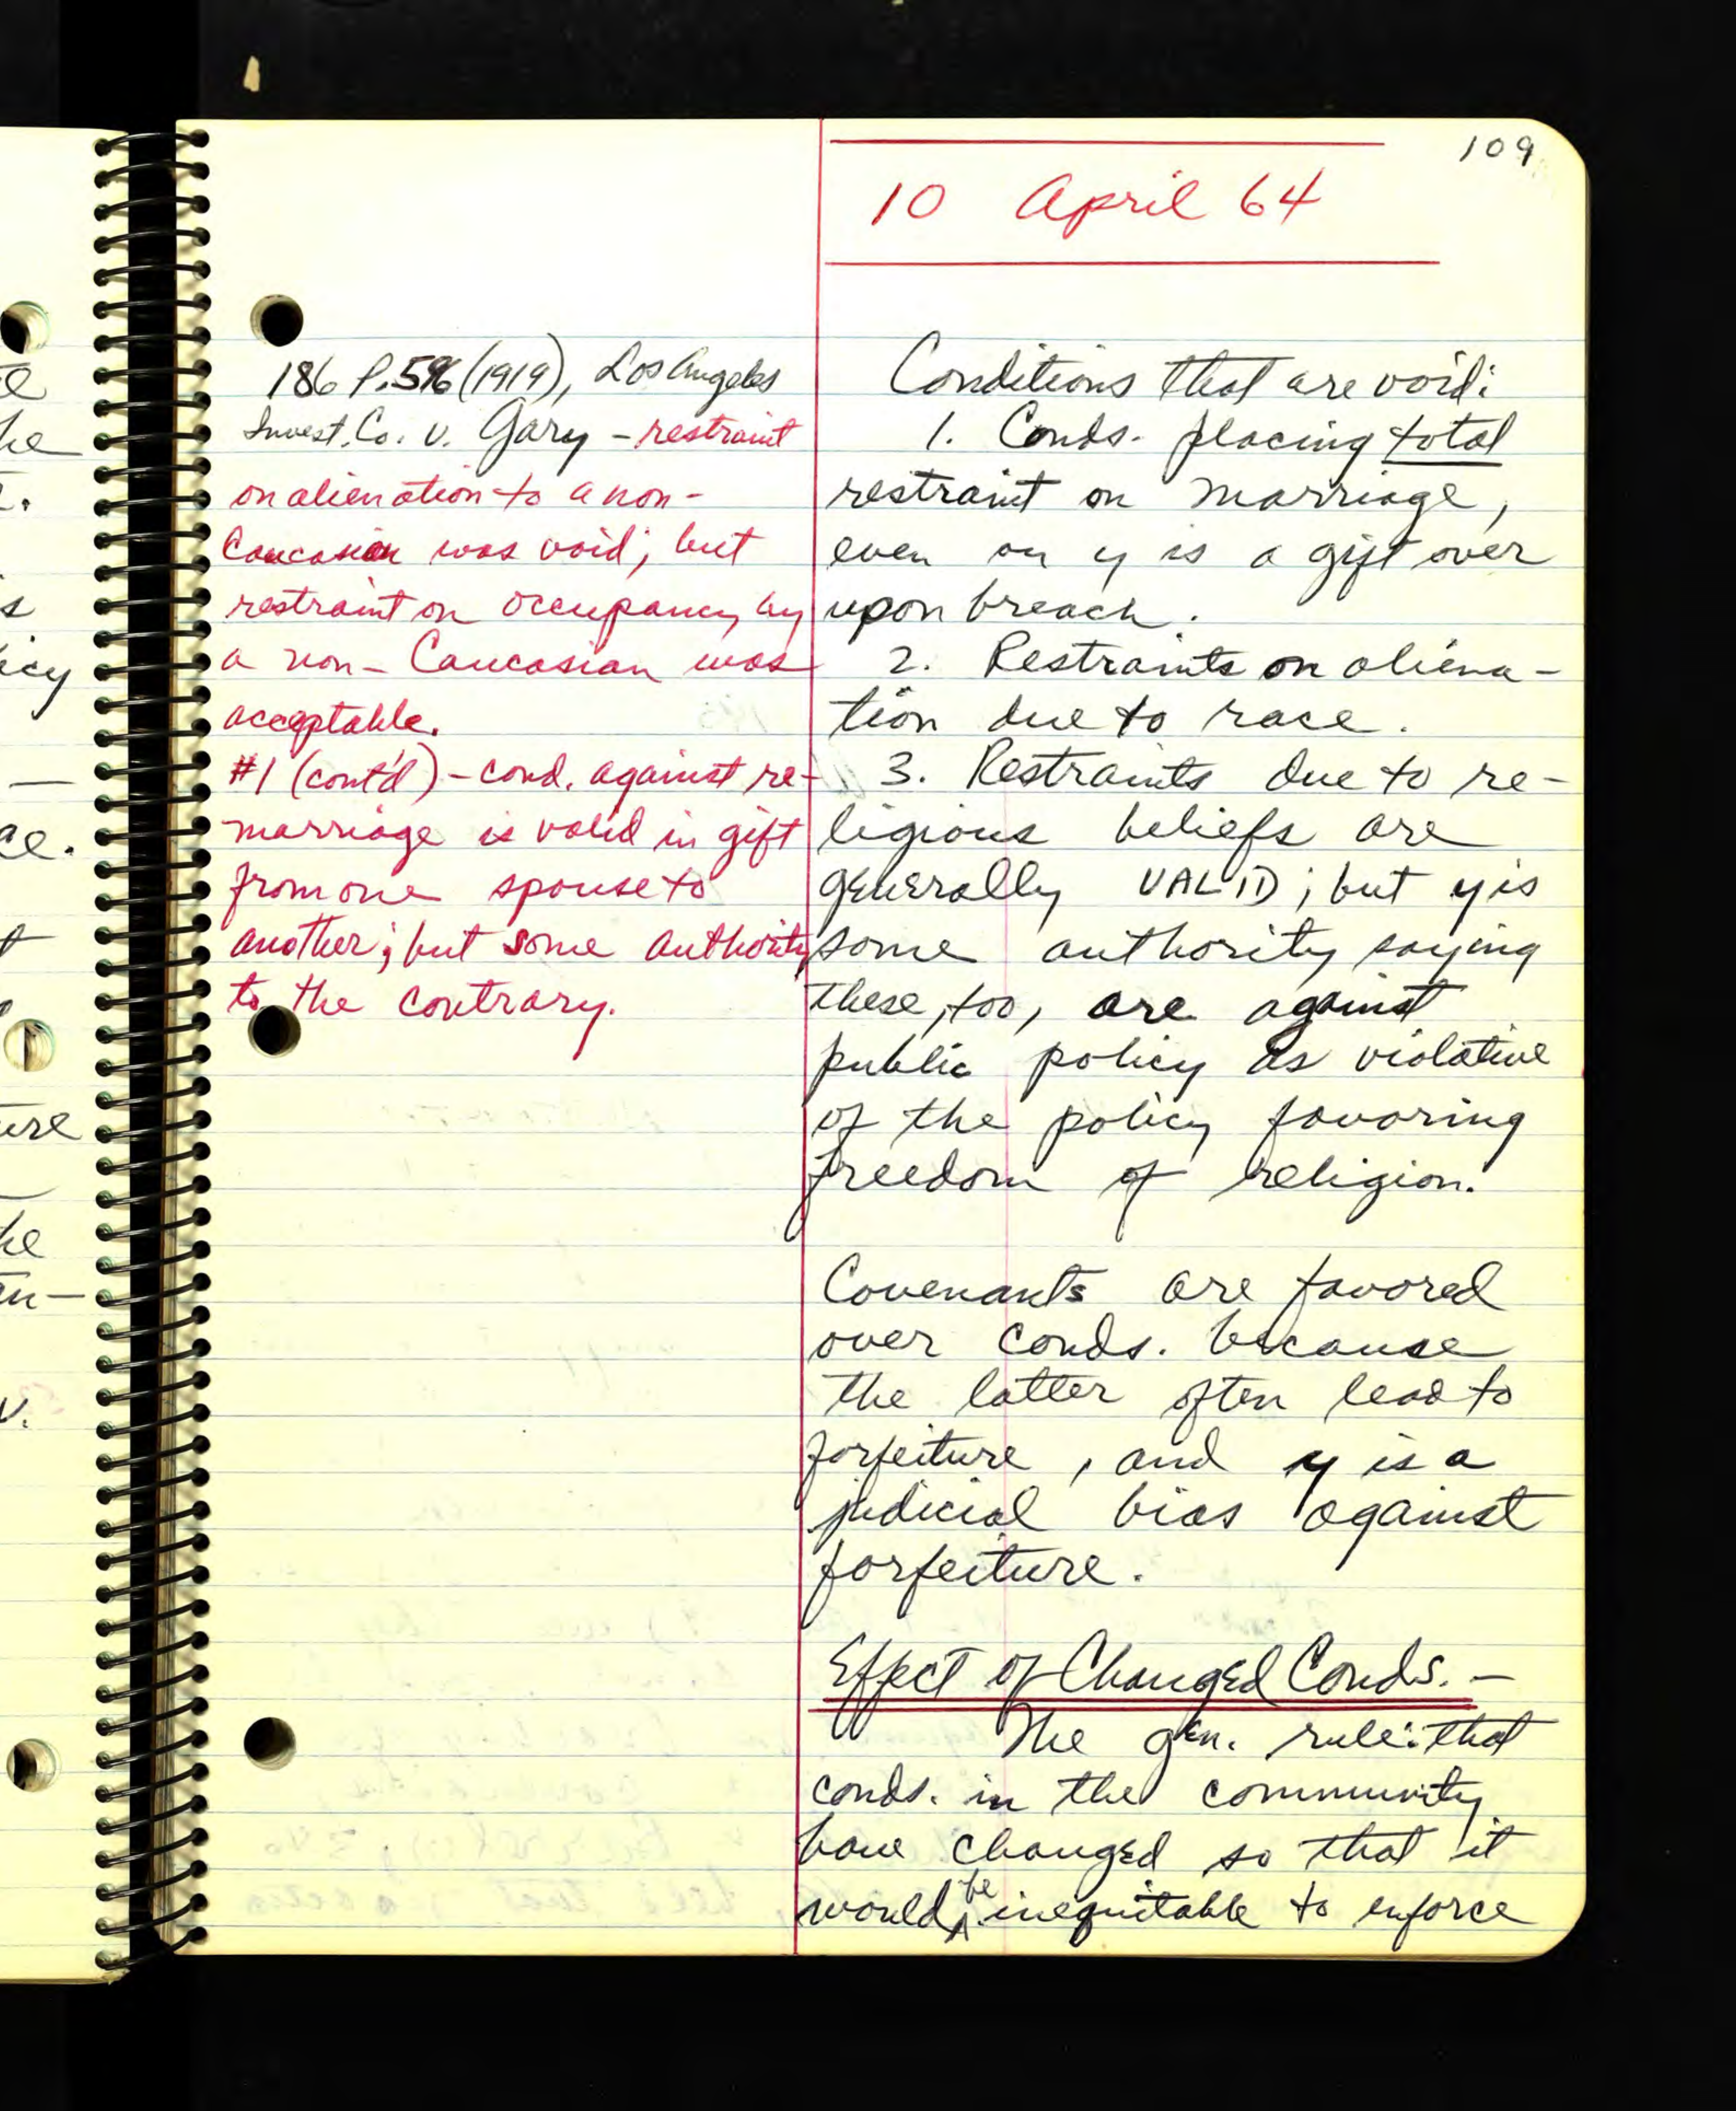 109
10 April 64
186 P. 596 (1919), Los Angeles
Invest. Co. v. Gary - restraint
on alienation to a non-
Caucasian was void; but
restraint on occupancy by
a non-Caucasian was
acceptable.
#1 (cont'd) - cond. against re-
marriage is valid in gift
from one spouse to
another; but some authority
to the contrary.
Conditions that are void:
1. Conds. placing total
restraint on marriage,
even on y is a gift over
upon breach.
2. Restraints on aliena-
tion due to race.
3. Restraints due to re-
ligious beliefs are
generally VALID; but y is
some authority saying
these, too, are against
public policy as violative
of the policy favoring
freedom of religion.
Covenants are favored
over conds. because
the latter often lead to
forfeiture, and y is a
judicial bias against
forfeiture.
Effect of Changed Conds. -
The gen. rule: that
conds. in the community
have changed so that it
would be inequitable to enforce